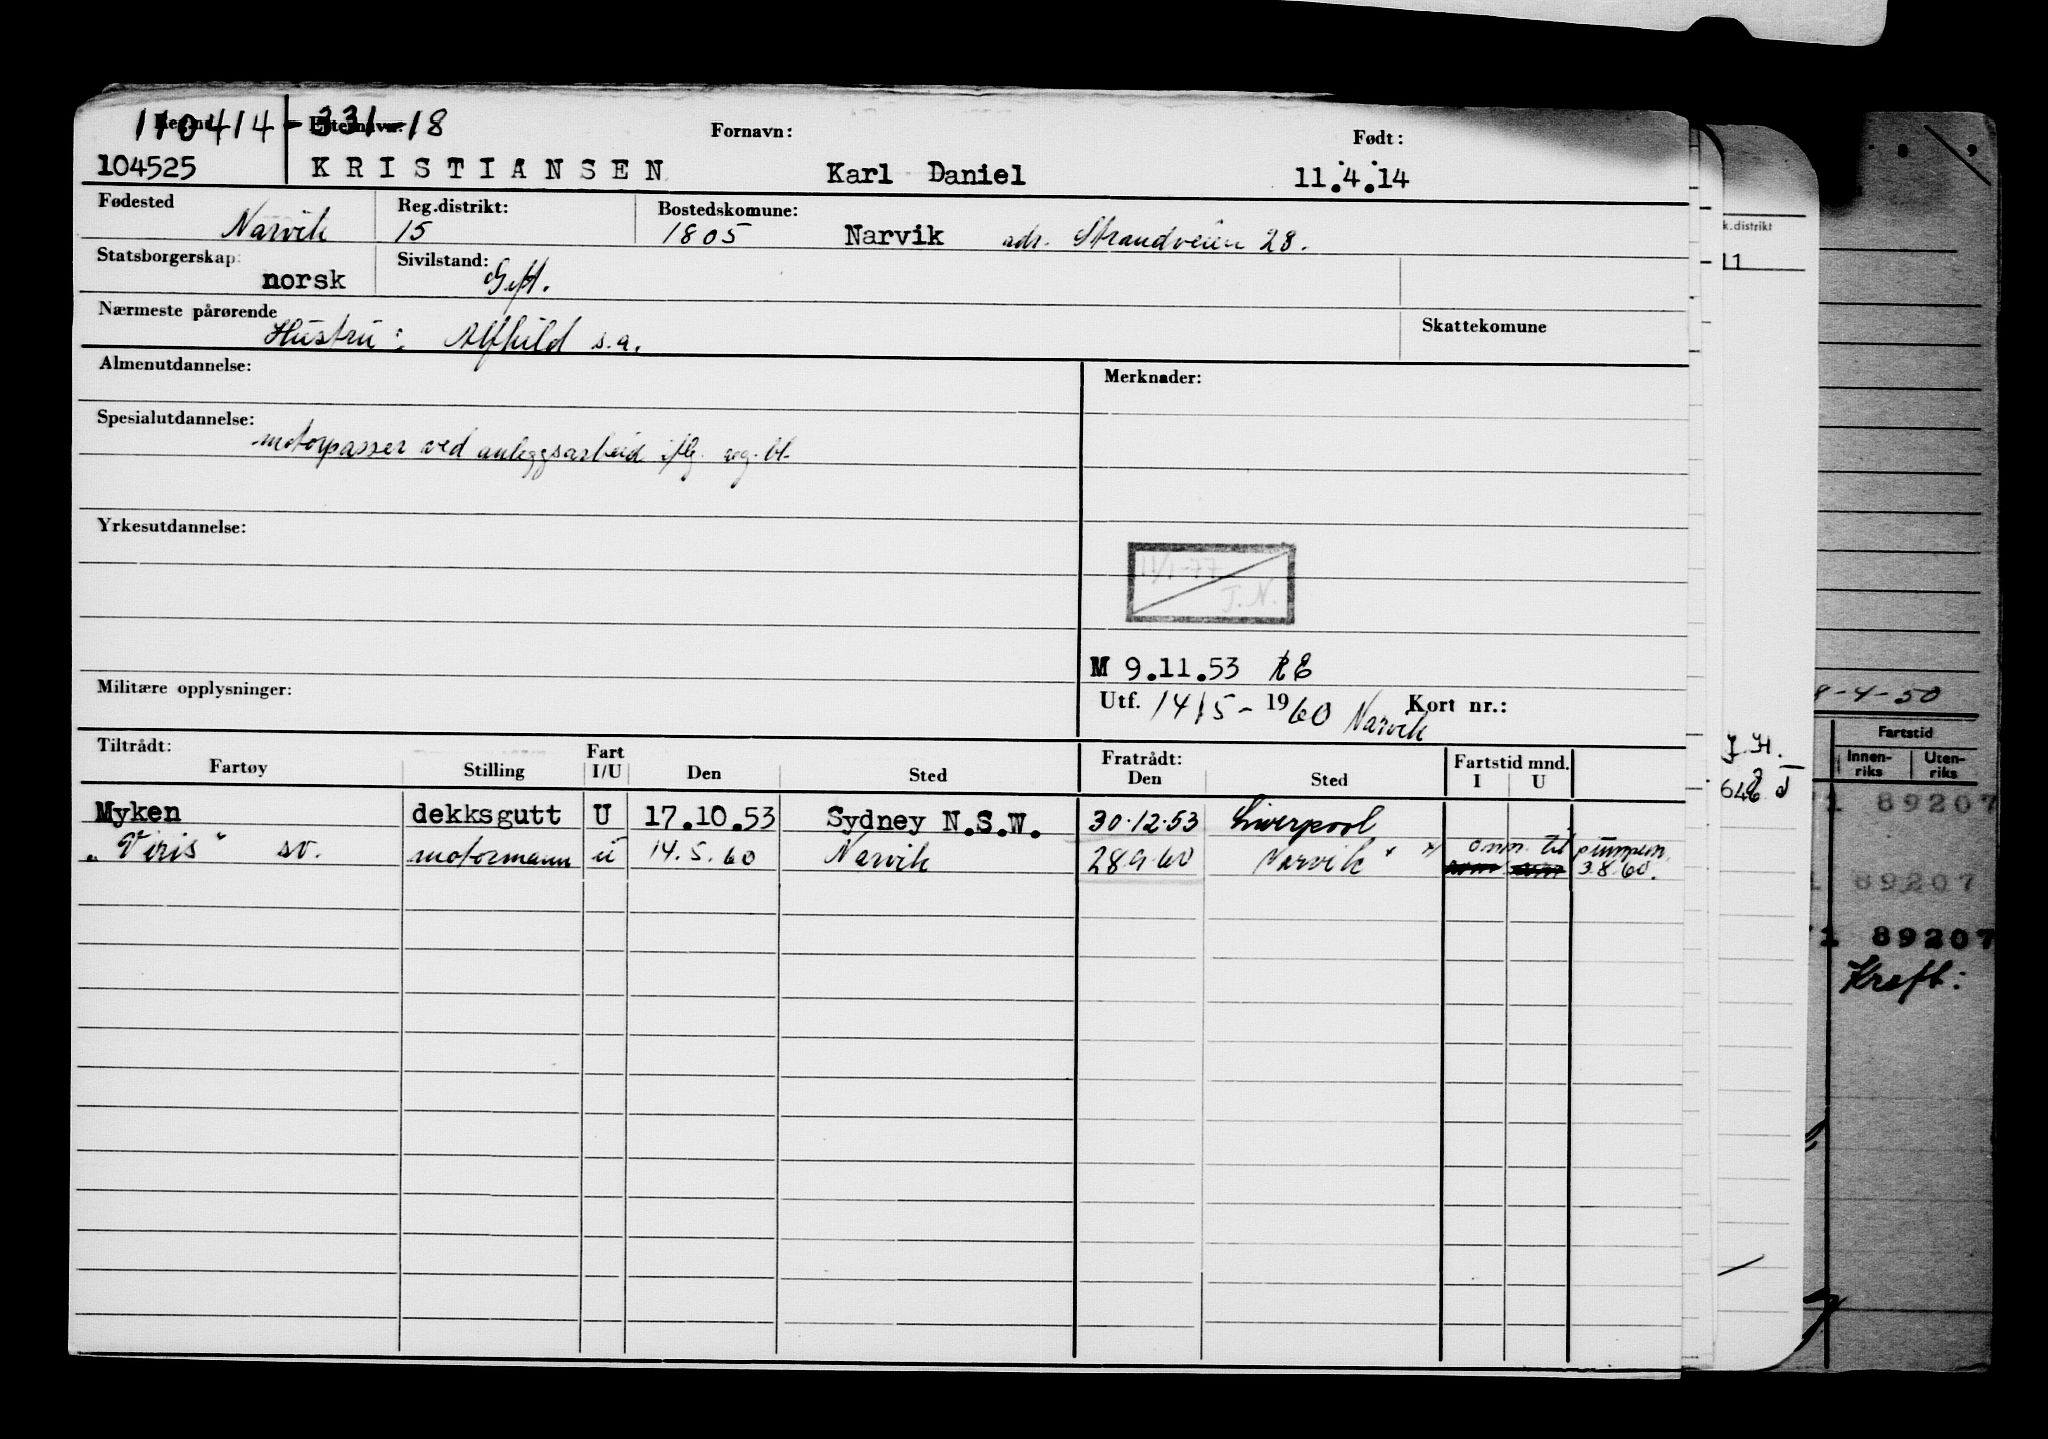 110414-331-18
Reg.nr. Etternavn: Fornavn: Født:
104525 KRISTIANSEN Karl Daniel 11.4.14
Fødested Reg.distrikt: Bostedskomune:
Narvik 15 1805 Narvik adr. Strandveien 28.
Statsborgerskap: Sivilstand:
norsk Gift.
Nærmeste pårørende Skattekomune
Hustru: Alfhild s.a.
Almenutdannelse: Merknader:
Spesialutdannelse:
motorpasser ved anleggsarbeid iflg. reg.bl.
Yrkesutdannelse:
11/1-77
J.N.
M 9.11.53 RE
Militære opplysninger:
Utf. 14/5-1960 Narvik Kort nr.:
Tiltrådt: Fratrådt:
Fartøy Stilling Fart I/U Den Sted Den Sted Fartstid mnd. I U
Myken dekksgutt U 17.10.53 Sydney N.S.W. 30.12.53 Liverpool
"Viris" sv. motormann u 14.5.60 Narvik 28.9.60 Narvik x x) omm. til pumpem.
3.8.60.
k.distrikt
11
J.H.
648 d
8-4-50
Fartstid
Innen-riks Uten-riks
71 89207
1 89207
71 89207
Kreft: